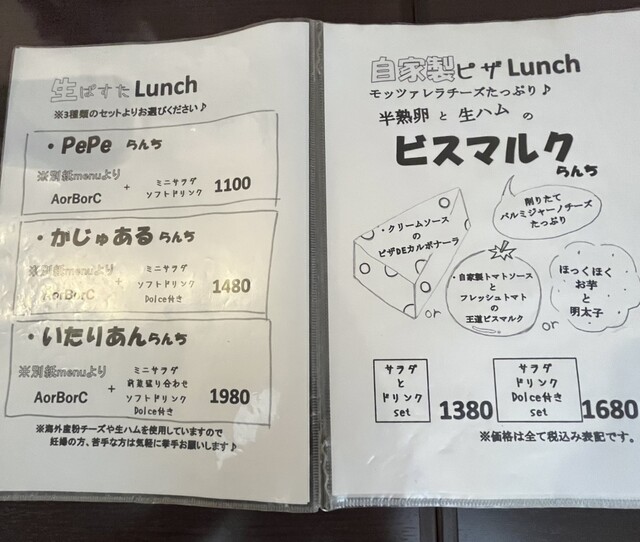 生ぱすたLunch
※3種類のセットよりお選びください♪
・PePe らんち
※別紙menuより
AorBorC
+
ミニサラダ
ソフトドリンク
1100
・かじゅあるらんち
※別紙menuより
AorBorC
+
ミニサラダ
ソフトドリンク
Dolce付き
1480
・いたりあんらんち
※別紙menuより
AorBorC
+
ミニサラダ
前菜盛り合わせ
ソフトドリンク
Dolce付き
1980
※海外産粉チーズや生ハムを使用していますので
妊婦の方、苦手な方は気軽に挙手お願いします♪
自家製ピザLunch
モッツァレラチーズたっぷり♪
半熟卵と生ハムの
ビスマルク
らんち
削りたて
パルミジャーノチーズ
たっぷり
・クリームソース
の
ピザDEカルボナーラ
or
・自家製トマトソース
と
フレッシュトマト
の
王道ビスマルク
or
ほっくほく
お芋
と
明太子
サラダ
と
ドリンク
set
1380
サラダ
ドリンク
Dolce付き
set
1680
※価格は全て税込み表記です。